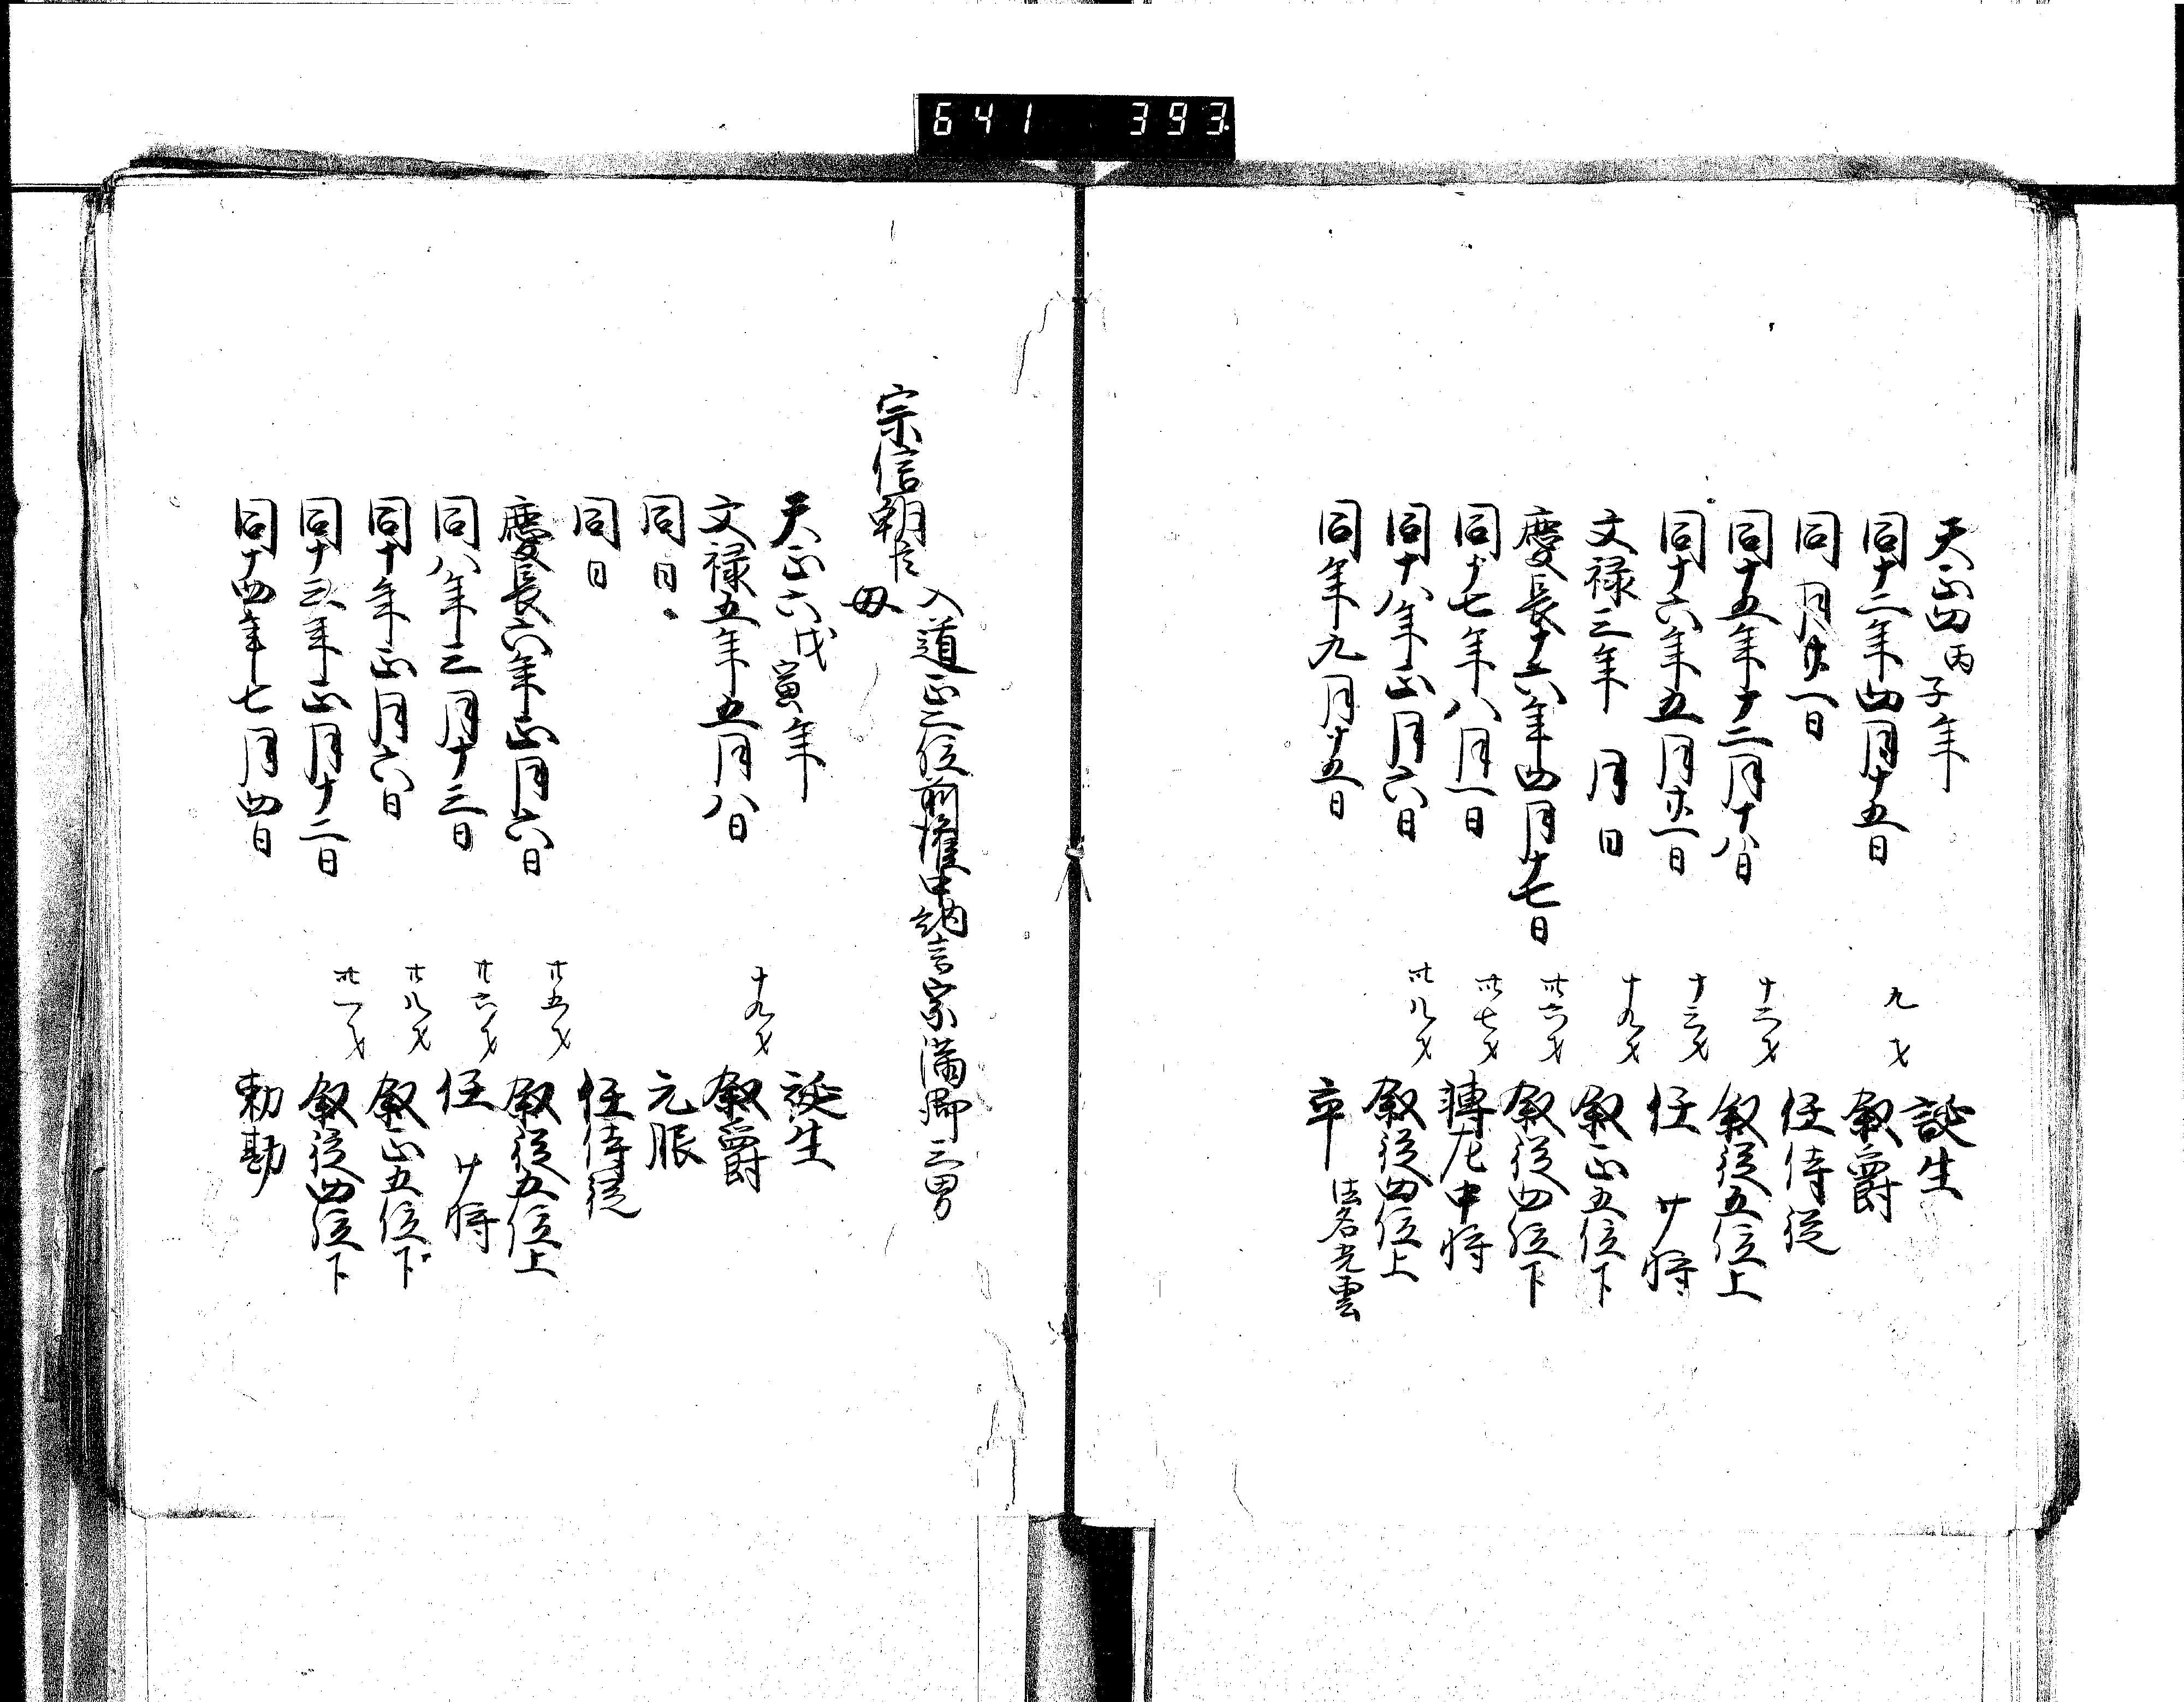 641 393
天正四丙子年 誕生
同十二年四月十五日 九才 叙爵
同月廿一日 任侍従
同十五年十二月十八日 十二才 叙従五位上
同十六年五月廿一日 十三才 任少将
文禄三年 月 日 十九才 叙正五位下
慶長十六年四月十七日 卅六才 叙従四位下
同十七年八月一日 卅七才 轉左中将
同十八年正月六日 卅八才 叙従四位上
同年九月十五日 卒 法名光雲
入道正二位前権中納言宗満卿三男
宗信朝臣 母
天正六戊寅年 誕生
文禄五年五月八日 十九才 叙爵
同日 元服
同日 任侍従
慶長六年正月六日 廿五才 叙従五位上
同八年三月十三日 廿六才 任少将
同十年正月六日 廿八才 叙正五位下
同十三年正月十二日 卅一才 叙従四位下
同十四年七月四日 勅勘